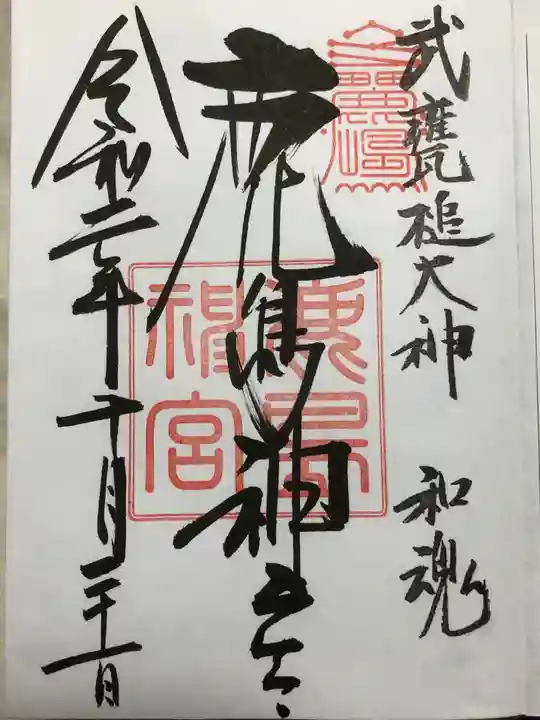 武甕槌大神　和魂
鹿島神宮
鹿島
神宮
令和二年十月二十一日